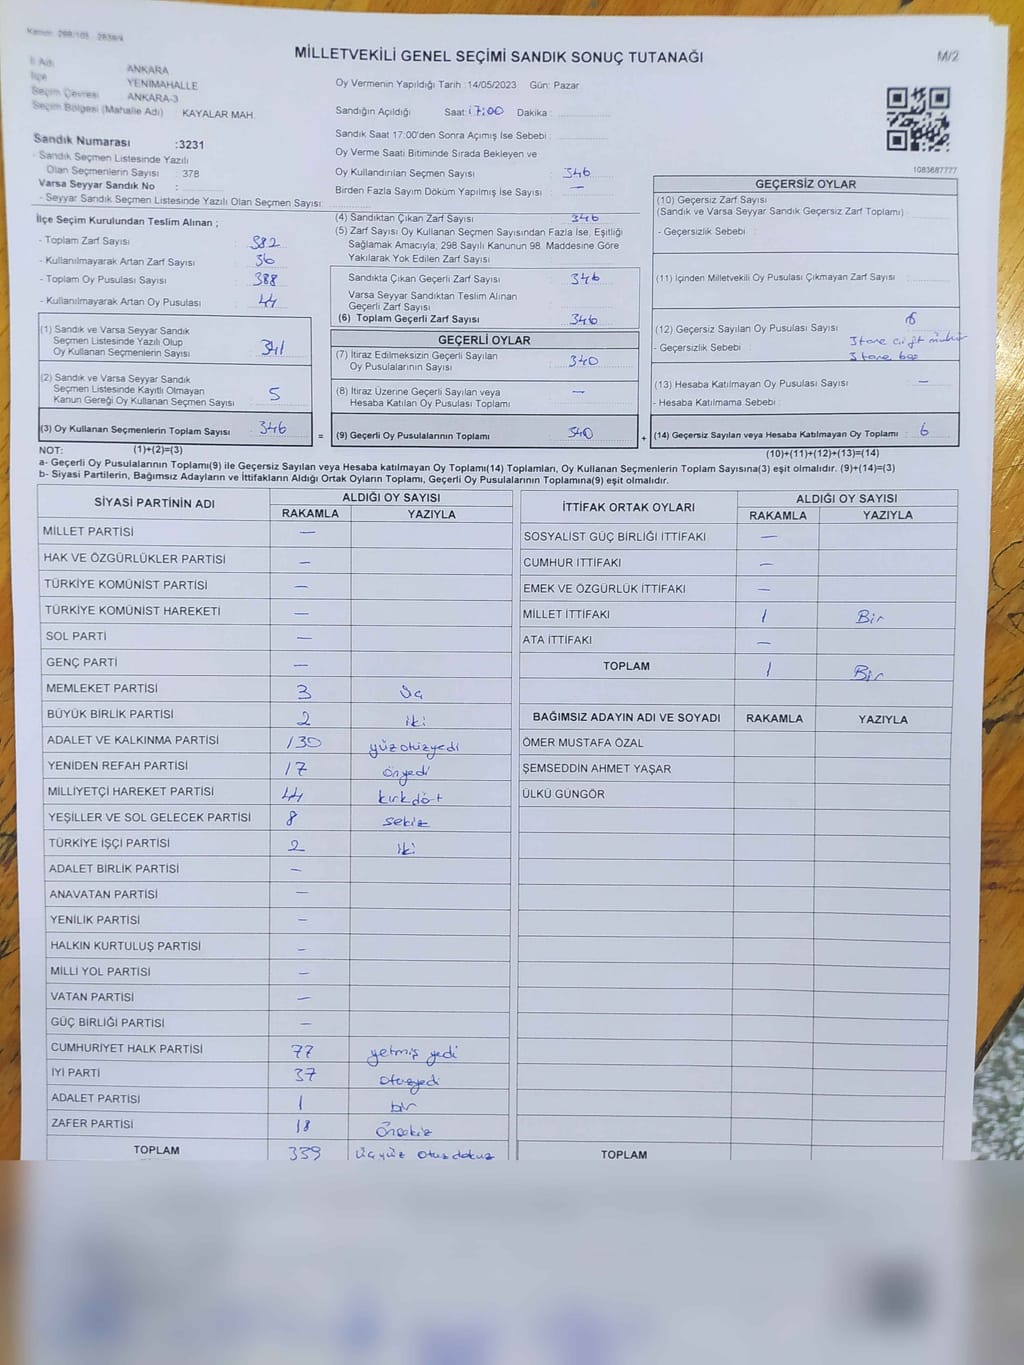 Kanun: 298/105 2839/4
MİLLETVEKİLİ GENEL SEÇİMİ SANDIK SONUÇ TUTANAĞI
M/2
İl Adı ANKARA
İlçe YENİMAHALLE
Seçim Çevresi ANKARA-3
Seçim Bölgesi (Mahalle Adı) : KAYALAR MAH.
Sandık Numarası :3231
- Sandık Seçmen Listesinde Yazılı
Olan Seçmenlerin Sayısı : 378
Varsa Seyyar Sandık No :
- Seyyar Sandık Seçmen Listesinde Yazılı Olan Seçmen Sayısı:
Oy Vermenin Yapıldığı Tarih :14/05/2023 Gün: Pazar
Sandığın Açıldığı Saat: 17:00 Dakika :
Sandık Saat 17:00'den Sonra Açımış İse Sebebi :
Oy Verme Saati Bitiminde Sırada Bekleyen ve
Oy Kullandırılan Seçmen Sayısı : 346
Birden Fazla Sayım Döküm Yapılmış İse Sayısı : —
1083687777
İlçe Seçim Kurulundan Teslim Alınan ;
- Toplam Zarf Sayısı : 382
- Kullanılmayarak Artan Zarf Sayısı : 36
- Toplam Oy Pusulası Sayısı : 388
- Kullanılmayarak Artan Oy Pusulası : 44
(1) Sandık ve Varsa Seyyar Sandık
Seçmen Listesinde Yazılı Olup
Oy Kullanan Seçmenlerin Sayısı : 341
(2) Sandık ve Varsa Seyyar Sandık
Seçmen Listesinde Kayıtlı Olmayan
Kanun Gereği Oy Kullanan Seçmen Sayısı : 5
(3) Oy Kullanan Seçmenlerin Toplam Sayısı : 346
(4) Sandıktan Çıkan Zarf Sayısı : 346
(5) Zarf Sayısı Oy Kullanan Seçmen Sayısından Fazla İse, Eşitliği
Sağlamak Amacıyla; 298 Sayılı Kanunun 98. Maddesine Göre
Yakılarak Yok Edilen Zarf Sayısı :
Sandıkta Çıkan Geçerli Zarf Sayısı : 346
Varsa Seyyar Sandıktan Teslim Alınan
Geçerli Zarf Sayısı :
(6) Toplam Geçerli Zarf Sayısı : 346
GEÇERLİ OYLAR
(7) İtiraz Edilmeksizin Geçerli Sayılan
Oy Pusulalarının Sayısı : 340
(8) İtiraz Üzerine Geçerli Sayılan veya
Hesaba Katılan Oy Pusulası Toplamı : —
= (9) Geçerli Oy Pusulalarının Toplamı : 340
GEÇERSİZ OYLAR
(10) Geçersiz Zarf Sayısı
(Sandık ve Varsa Seyyar Sandık Geçersiz Zarf Toplamı) :
- Geçersizlik Sebebi :
(11) İçinden Milletvekili Oy Pusulası Çıkmayan Zarf Sayısı :
(12) Geçersiz Sayılan Oy Pusulası Sayısı : 6
- Geçersizlik Sebebi : 3 tane çift mühür
3 tane boş
(13) Hesaba Katılmayan Oy Pusulası Sayısı : —
- Hesaba Katılmama Sebebi :
+ (14) Geçersiz Sayılan veya Hesaba Katılmayan Oy Toplamı : 6
NOT: (1)+(2)=(3)
(10)+(11)+(12)+(13)=(14)
a- Geçerli Oy Pusulalarının Toplamı(9) ile Geçersiz Sayılan veya Hesaba katılmayan Oy Toplamı(14) Toplamları, Oy Kullanan Seçmenlerin Toplam Sayısına(3) eşit olmalıdır. (9)+(14)=(3)
b- Siyasi Partilerin, Bağımsız Adayların ve İttifakların Aldığı Ortak Oyların Toplamı, Geçerli Oy Pusulalarının Toplamına(9) eşit olmalıdır.
SİYASİ PARTİNİN ADI ALDIĞI OY SAYISI
RAKAMLA YAZIYLA
MİLLET PARTİSİ —
HAK VE ÖZGÜRLÜKLER PARTİSİ —
TÜRKİYE KOMÜNİST PARTİSİ —
TÜRKİYE KOMÜNİST HAREKETİ —
SOL PARTİ —
GENÇ PARTİ —
MEMLEKET PARTİSİ 3 Üç
BÜYÜK BİRLİK PARTİSİ 2 iki
ADALET VE KALKINMA PARTİSİ 130 yüzotuzyedi
YENİDEN REFAH PARTİSİ 17 önyedi
MİLLİYETÇİ HAREKET PARTİSİ 44 kırkdört
YEŞİLLER VE SOL GELECEK PARTİSİ 8 sekiz
TÜRKİYE İŞÇİ PARTİSİ 2 iki
ADALET BİRLİK PARTİSİ —
ANAVATAN PARTİSİ —
YENİLİK PARTİSİ —
HALKIN KURTULUŞ PARTİSİ —
MİLLİ YOL PARTİSİ —
VATAN PARTİSİ —
GÜÇ BİRLİĞİ PARTİSİ —
CUMHURİYET HALK PARTİSİ 77 yetmiş yedi
İYİ PARTİ 37 otuzyedi
ADALET PARTİSİ 1 bir
ZAFER PARTİSİ 18 önsekiz
TOPLAM 339 üçyüz otuzdokuz
İTTİFAK ORTAK OYLARI ALDIĞI OY SAYISI
RAKAMLA YAZIYLA
SOSYALİST GÜÇ BİRLİĞİ İTTİFAKI —
CUMHUR İTTİFAKI —
EMEK VE ÖZGÜRLÜK İTTİFAKI —
MİLLET İTTİFAKI 1 Bir
ATA İTTİFAKI —
TOPLAM 1 Bir
BAĞIMSIZ ADAYIN ADI VE SOYADI RAKAMLA YAZIYLA
ÖMER MUSTAFA ÖZAL
ŞEMSEDDİN AHMET YAŞAR
ÜLKÜ GÜNGÖR
TOPLAM